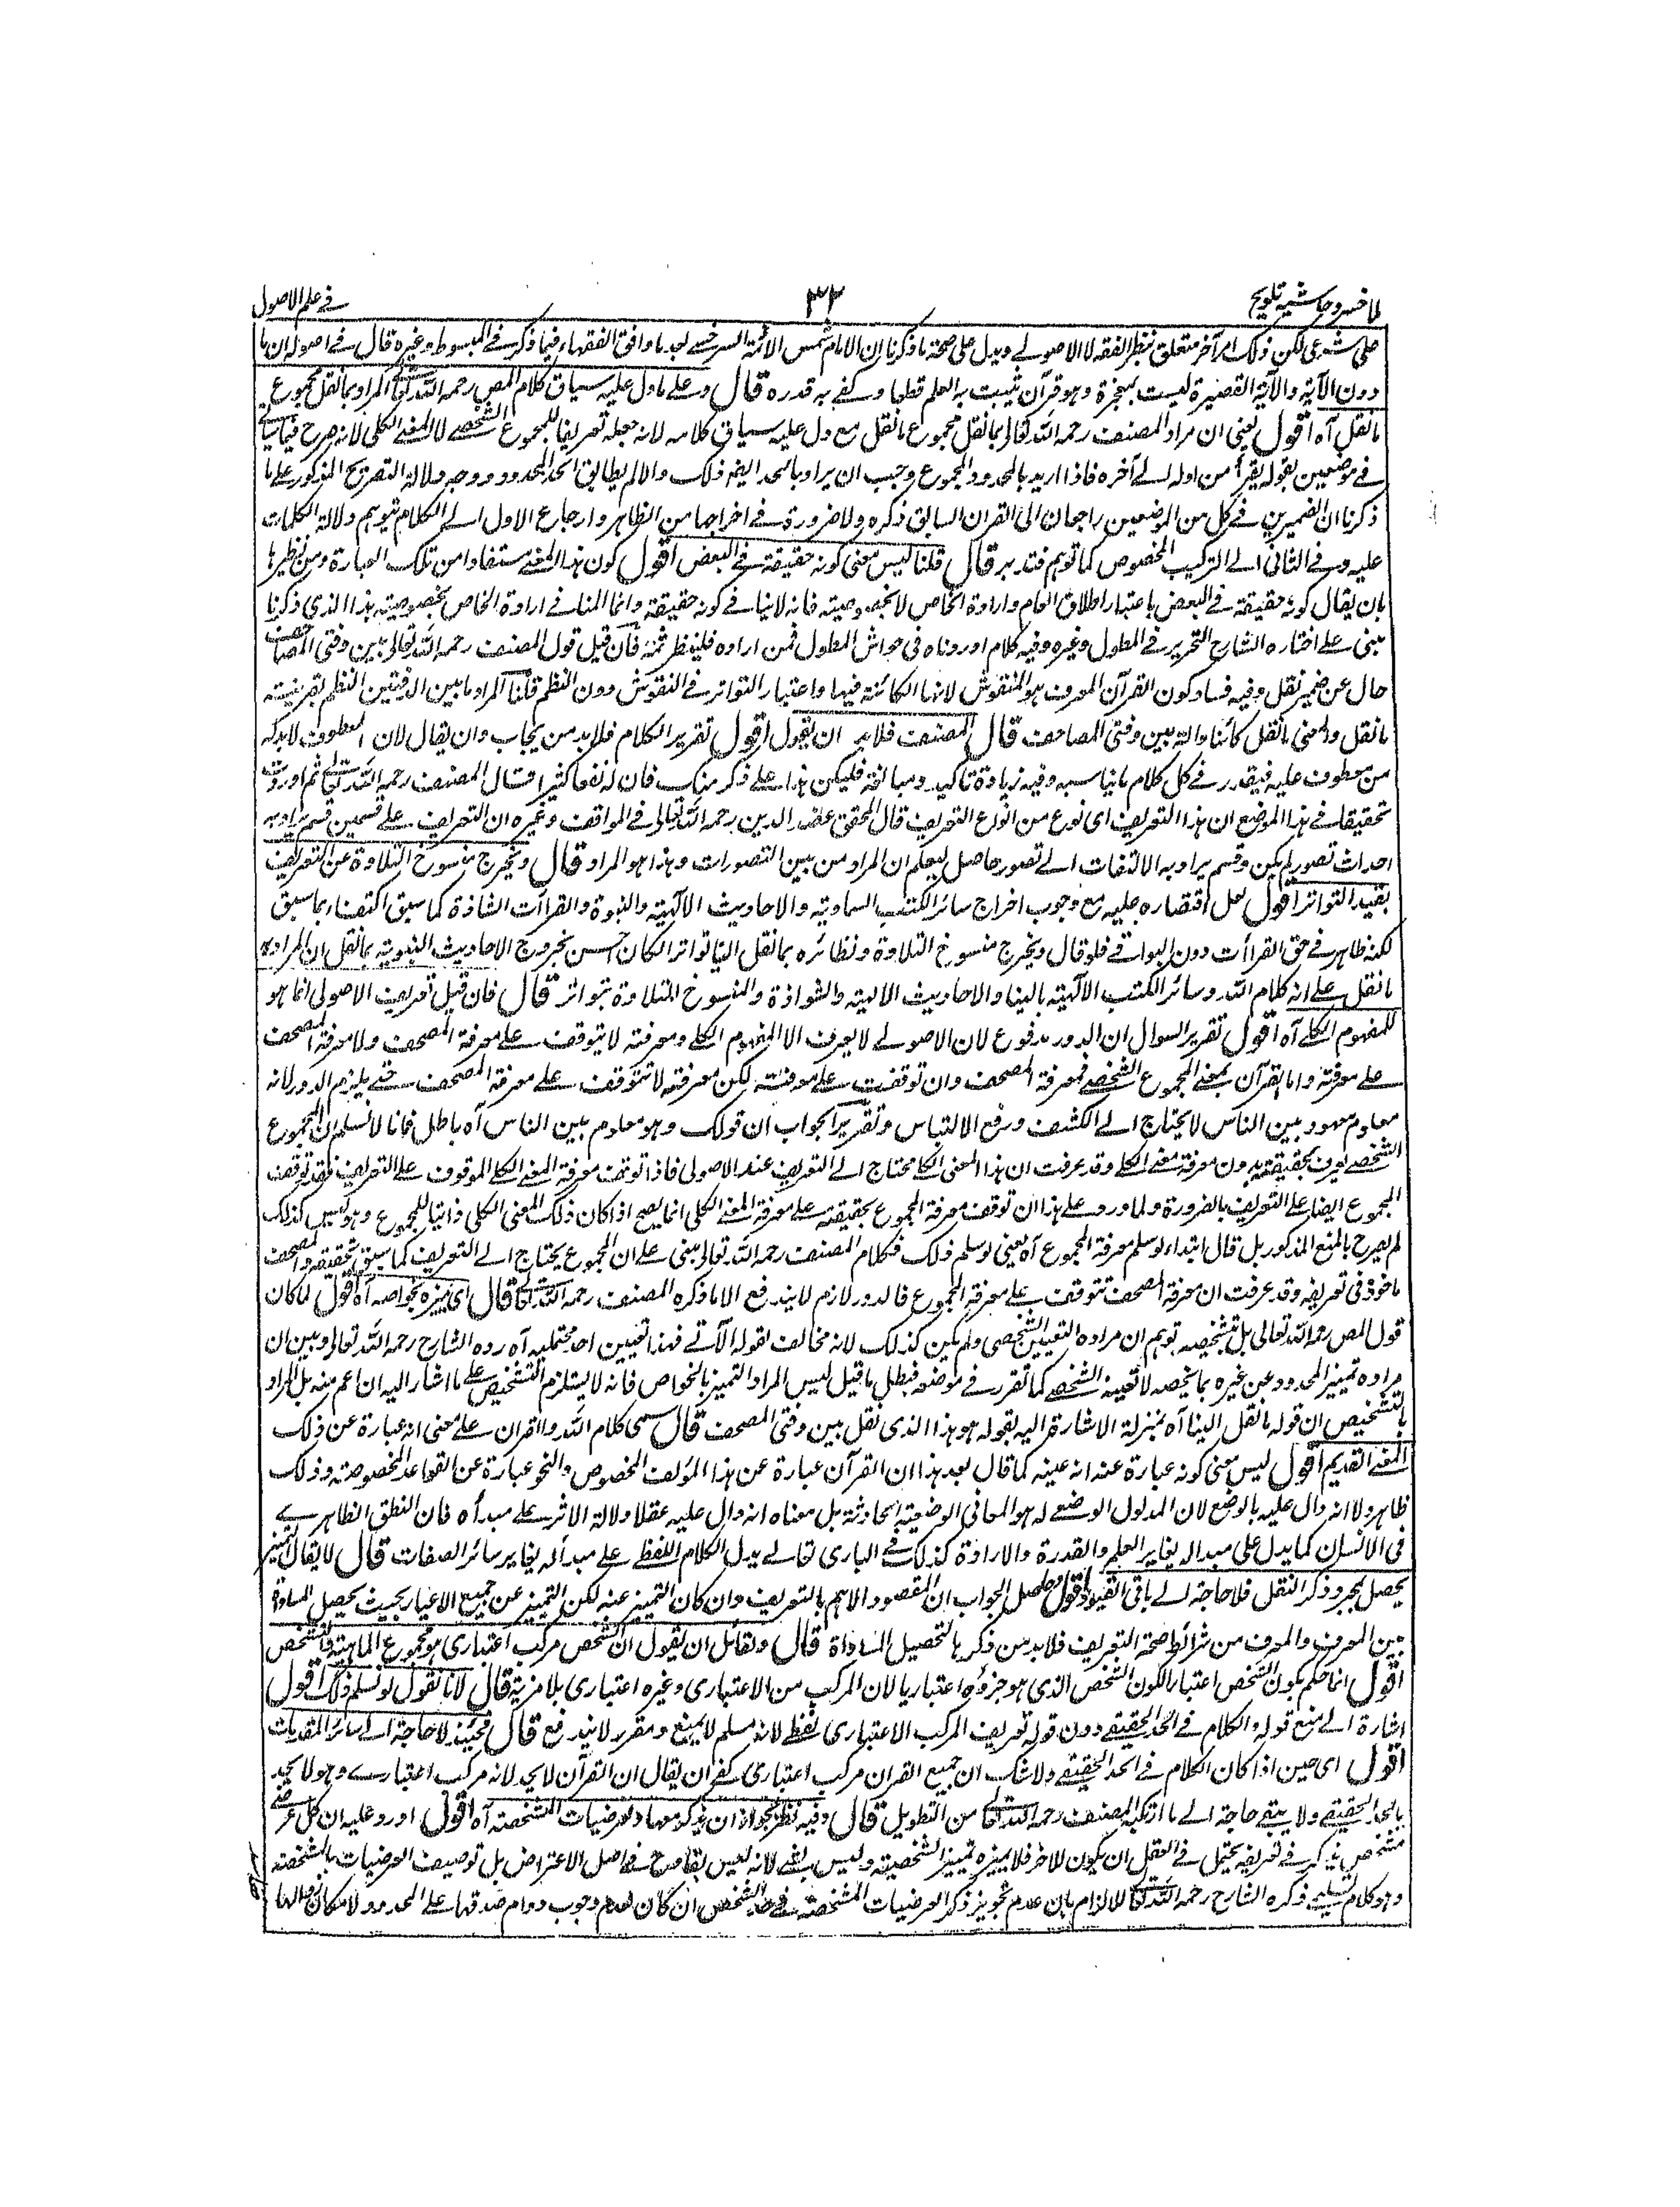 لماخسرو حاشیه تلویح
٣٢
فی علم الاصول
حلی شرعی لکن ذلک امر آخر متعلق بنظر الفقه لا الاصولی ویدل علی صحة ما ذکرنا ان الامام شمس الائمة السرخسی بعد ما وافق الفقهاء فیما ذکر فی المبسوط وغیره قال فی اصوله ان ما
دون الآیة والآیة القصیرة لیست بمعجزة وهو قرآن یثبت به العلم قطعا وکفی به قدره قال وعلی ما دل علیه سیاق کلام المص رحمه الله تعالی المراد بما نقل مجموع
ما نقل آه اقول یعنی ان مراد المصنف رحمه الله تعالی بما نقل مجموع ما نقل مع دل علیه سیاق کلامه لانه جعله تعریفا للمجموع الشخصی لا المعنی الکلی لانه صرح فیما سیأتی
فی موضعین بقوله یقرأ من اوله الی آخره فاذا ارید بالمحدود المجموع وجب ان یراد بالحد ایضا ذلک والا لم یطابق الحد المحدود ووجه دلالة التصریح المذکور علی ما
ذکرنا ان الضمیرین فی کل من الموضعین راجعان الی القرآن السابق ذکره ولا ضرورة فی اخراجهما من الظاهر وارجاع الاول الی الکلام بتوهم دلالة الکلمات
علیه وفی الثانی الی الترکیب المخصوص کما توهم فتدبر قال قلنا لیس معنی کونه حقیقة فی البعض اقول کون هذا المعنی مستفادا من تلک العبارة ومن نظیرها
بان یقال کونه حقیقة فی البعض باعتبار اطلاق العام وارادة الخاص لا بخصوصیته فانه لا ینافی کونه حقیقة وانما المنافی ارادة الخاص بخصوصیته هذا الذی ذکرنا
مبنی علی اختاره الشارح النحریر فی المطول وغیره وفیه کلام اوردناه فی حواشی المطول فمن اراده فلینظر ثمة فان قیل قول المصنف رحمه الله تعالی بین دفتی المصاحف
حال عن ضمیر نقل وفیه فساد کون القرآن المعرف هو المنقوش لانها الکائنة فیها واعتبار التواتر فی النقوش دون النظم قلنا المراد ما بین الدفتین النظم بقرینة
ما نقل والمعنی ما نقل کائنا دالة بین دفتی المصاحف قال المصنف فلا بد ان یقول اقول تقریر الکلام فلا بد من یجاب وان یقال لان المعطوف لا بد له
من معطوف علیه فیقدر فی کل کلام ما یناسبه وفیه زیادة تاکید ومبالغة فلیکن هذا علی ذکر منک فان له نفعا کثیرا قال المصنف رحمه الله تعالی ثم اوردت
تحقیقا فی هذا الموضع ان هذا التعریف ای نوع من انواع التعریف قال المحقق عضد الدین رحمه الله تعالی فی المواقف وغیره ان التعریف علی قسمین قسم یراد به
احداث تصور لم یکن وقسم یراد به الالتفات الی تصور حاصل لیعلم ان المراد من بین التصورات وهذا هو المراد قال ویخرج منسوخ التلاوة عن التعریف
بقید التواتر اقول لعل اقتصاره علیه مع وجوب اخراج سائر الکتب السماویة والاحادیث الآلهیة والنبویة والقراآت الشاذة کما سبق اکتفاء بما سبق
لکنه ظاهر فی حق القراآت دون البواقی فلو قال ویخرج منسوخ التلاوة ونظائره بما نقل الینا تواترا لکان احسن بخروج الاحادیث النبویة بما نقل ان المراد به
ما نقل علی انه کلام الله وسائر الکتب الآلهیة بالینا والاحادیث الالهیة والشواذة والمنسوخ التلاوة بتواتر قال فان قیل تعریف الاصولی انما هو
للمفهوم الکلی آه اقول تقریر السوال ان الدور مدفوع لان الاصولی لا یعرف الا المفهوم الکلی ومعرفته لا یتوقف علی معرفة المصحف ولا معرفة المصحف
علی معرفته واما القرآن بمعنی المجموع الشخصی فمعرفة المصحف وان توقفت علی معرفته لکن معرفته لا تتوقف علی معرفة المصحف حتی یلزم الدور لانه
معلوم معهود بین الناس لا یحتاج الی الکشف ورفع الالتباس وتقریر الجواب ان قولک وهو معلوم بین الناس آه باطل فانا لا نسلم ان المجموع
الشخصی یعرف بحقیقته بدون معرفة معنی الکلی وقد عرفت ان هذا المعنی الکلی محتاج الی التعریف عند الاصولی فاذا توقف معرفة المعنی الکلی الموقوف علی التعریف فقد توقف
المجموع ایضا علی التعریف بالضرورة ولما ورد علی هذا ان توقف معرفة المجموع بحقیقته علی معرفة المعنی الکلی انما یصح اذا کان ذلک المعنی الکلی ذاتیا للمجموع وهو لیس کذلک
لم یصرح بالمنع المذکور بل قال ابتداء لو سلم معرفة المجموع آه یعنی لو سلم ذلک فکلام المصنف رحمه الله تعالی مبنی علی ان المجموع یحتاج الی التعریف کما سبق تحقیقه والمصحف
ماخوذ فی تعریفه وقد عرفت ان معرفة المصحف تتوقف علی معرفة المجموع فالدور لازم لا یندفع الا ما ذکره المصنف رحمه الله تعالی قال ای تمیزه بخواصه آه اقول لما کان
قول المص رحمه الله تعالی بل تشخیصه توهم ان مراده التعیین الشخصی ولم یکن کذلک لانه مخالف لقوله الآتی فهذا تعیین احد محتملیه آه رده الشارح رحمه الله تعالی وبین ان
مراده تمییز المحدود عن غیره بما یخصه لا تعیینه الشخصی کما تقرر فی موضعه فبطل ما قیل لیس المراد التمیز بالخواص فانه لا یستلزم التشخیص علی ما اشار الیه ان اعم منه بل المراد
بالتشخیص ان قوله ما نقل الینا آه بمنزلة الاشارة الیه بقوله هو هذا الذی نقل بین دفتی المصحف قال سمی کلام الله والقرآن علی معنی انه عبارة عن ذلک
المعنی القدیم اقول لیس معنی کونه عبارة عنه انه عینه کما قال بعد هذا ان القرآن عبارة عن هذا المؤلف المخصوص والنحو عبارة عن القواعد المخصوصة وذلک
ظاهر ولا انه دال علیه بالوضع لان المدلول الوضعی له هو المعانی الوضعیة الحادثة بل معناه انه دال علیه عقلا دلالة الاثر علی مبدأه فان النطق الظاهری
فی الانسان کما یدل علی مبدا له یغایر العلم والقدرة والارادة کذلک فی الباری تعالی یدل الکلام اللفظی علی مبدأ له یغایر سائر الصفات قال لا یقال التمییز
یحصل بمجرد ذکر النقل فلا حاجة الی باقی القیود اقول حاصل الجواب ان المقصود الاهم بالتعریف وان کان التمیز عنه لکن التمیز عن جمیع الاغیار بحیث یحصل المساواة
بین المعرف والمعرف من شرائط صحة التعریف فلا بد من ذکر بالتحصیل المساواة قال ولقائل ان یقول ان الشخص مرکب اعتباری هو مجموع الماهیة والتشخص
اقول انما حکم بکون الشخص اعتباریا لکون التشخص الذی هو جزؤه اعتباریا لان المرکب من الاعتباری وغیره اعتباری بلا مریة قال لانا نقول لو نسلم ذلک اقول
اشارة الی منع قوله والکلام فی الحد الحقیقی دون قوله تعریف المرکب الاعتباری لفظی لانه مسلم لا یمنع ومقرر لا یندفع قال فحینئذ لا حاجة الی سائر المقدمات
اقول ای حین اذا کان الکلام فی الحد الحقیقی ولا شک ان جمیع القرآن مرکب اعتباری کفی ان یقال ان القرآن لا یحد لانه مرکب اعتباری وهو لا یحد
بالحد الحقیقی ولا یبقی حاجة الی ما ارتکبه المصنف رحمه الله تعالی من التطویل قال وفیه نظر لجواز ان یذکر معها والعرضیات المشخصة آه اقول اورد علیه ان کل عرضی
مشخص یذکر فی تعریفه یحتمل فی العقل ان یکون للآخر فلا یمیزه تمییز الشخصیة ولیس بشئ لانه لیس بقادح فی اصل الاعتراض بل توصیف العرضیات بالمشخصة
وهو کلام تسلیمی ذکره الشارح رحمه الله تعالی للالزام بان عدم تجویز ذکر العرضیات المشخصة فی حد الشخص ان کان لعدم وجوب دوام صدقها علی المحدود لامکان زوالها